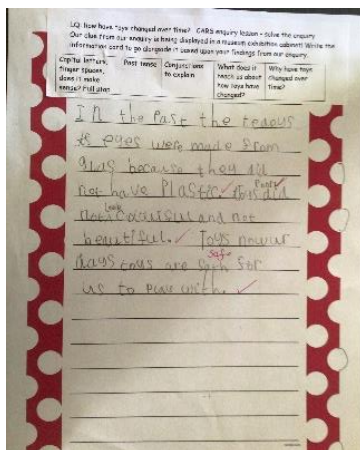 LQ: How have toys changed over time? GARS enquiry lesson - solve the enquiry
Our clue from our enquiry is being displayed in a museum exhibition cabinet! Write the
information card to go alongside it based upon your findings from our enquiry.
Capital letters, finger spaces, does it make sense? Full stop
Past tense
Conjunctions to explain
What does it teach us about how toys have changed?
Why have toys changed over time?
In the Past the
eyes were made from
because they did
not have Plastic. did
not look and not
beautiful. Toys
days toys are safe for
us to Play with.